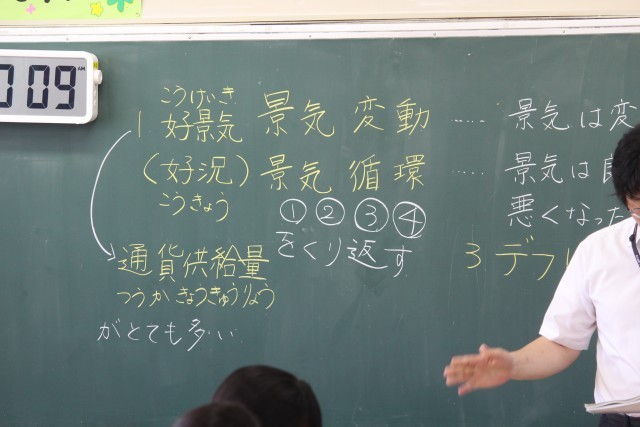 009
AM
こうけいき
1 好景気 景気変動 …… 景気は変
(好況) 景気循環 …… 景気は良
こうきょう
① ② ③ ④
をくり返す
悪くなった
通貨供給量
つうかきょうきゅうりょう
がとても多い
3 デフレ